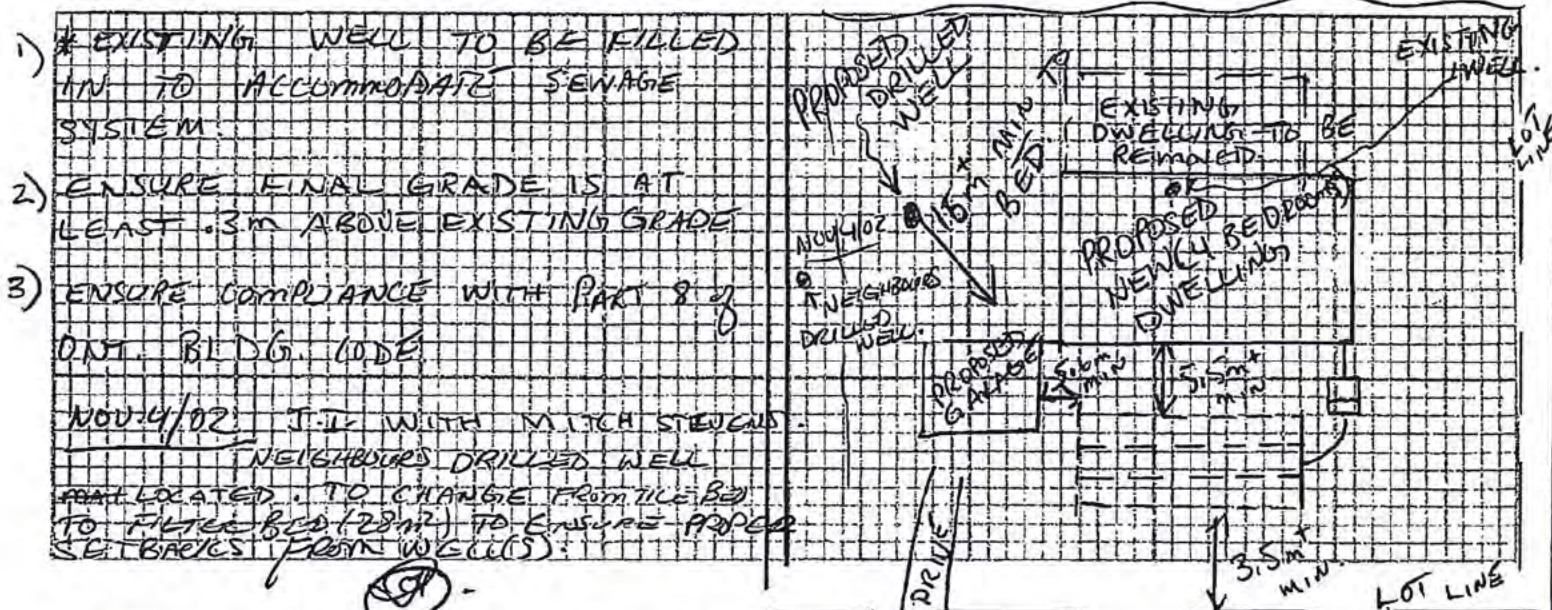 1) * EXISTING WELL TO BE FILLED
IN TO ACCOMMODATE SEWAGE
SYSTEM.
2) ENSURE FINAL GRADE IS AT
LEAST .3m ABOVE EXISTING GRADE
3) ENSURE COMPLIANCE WITH PART 8 of
ONT. BLDG. CODE
NOV. 4/02 J.I. WITH MITCH STEVENS.
NEIGHBOURS DRILLED WELL
LOCATED. TO CHANGE FROM TILE BED
TO FILTER BED (28m²) TO ENSURE PROPER
SETBACKS FROM WELL(S).
PROPOSED
DRILLED
WELL
15m+ MIN TO
BED
NOV 4/02
NEIGHBOURS
DRILLED
WELL.
EXISTING
WELL.
EXISTING
DWELLING TO BE
REMOVED
LOT
LINE
PROPOSED
NEW (4 BEDROOM)
DWELLING
PROPOSED
GARAGE
MIN
5.5m+
MIN
DRIVE
3.5m+
MIN.
LOT LINE